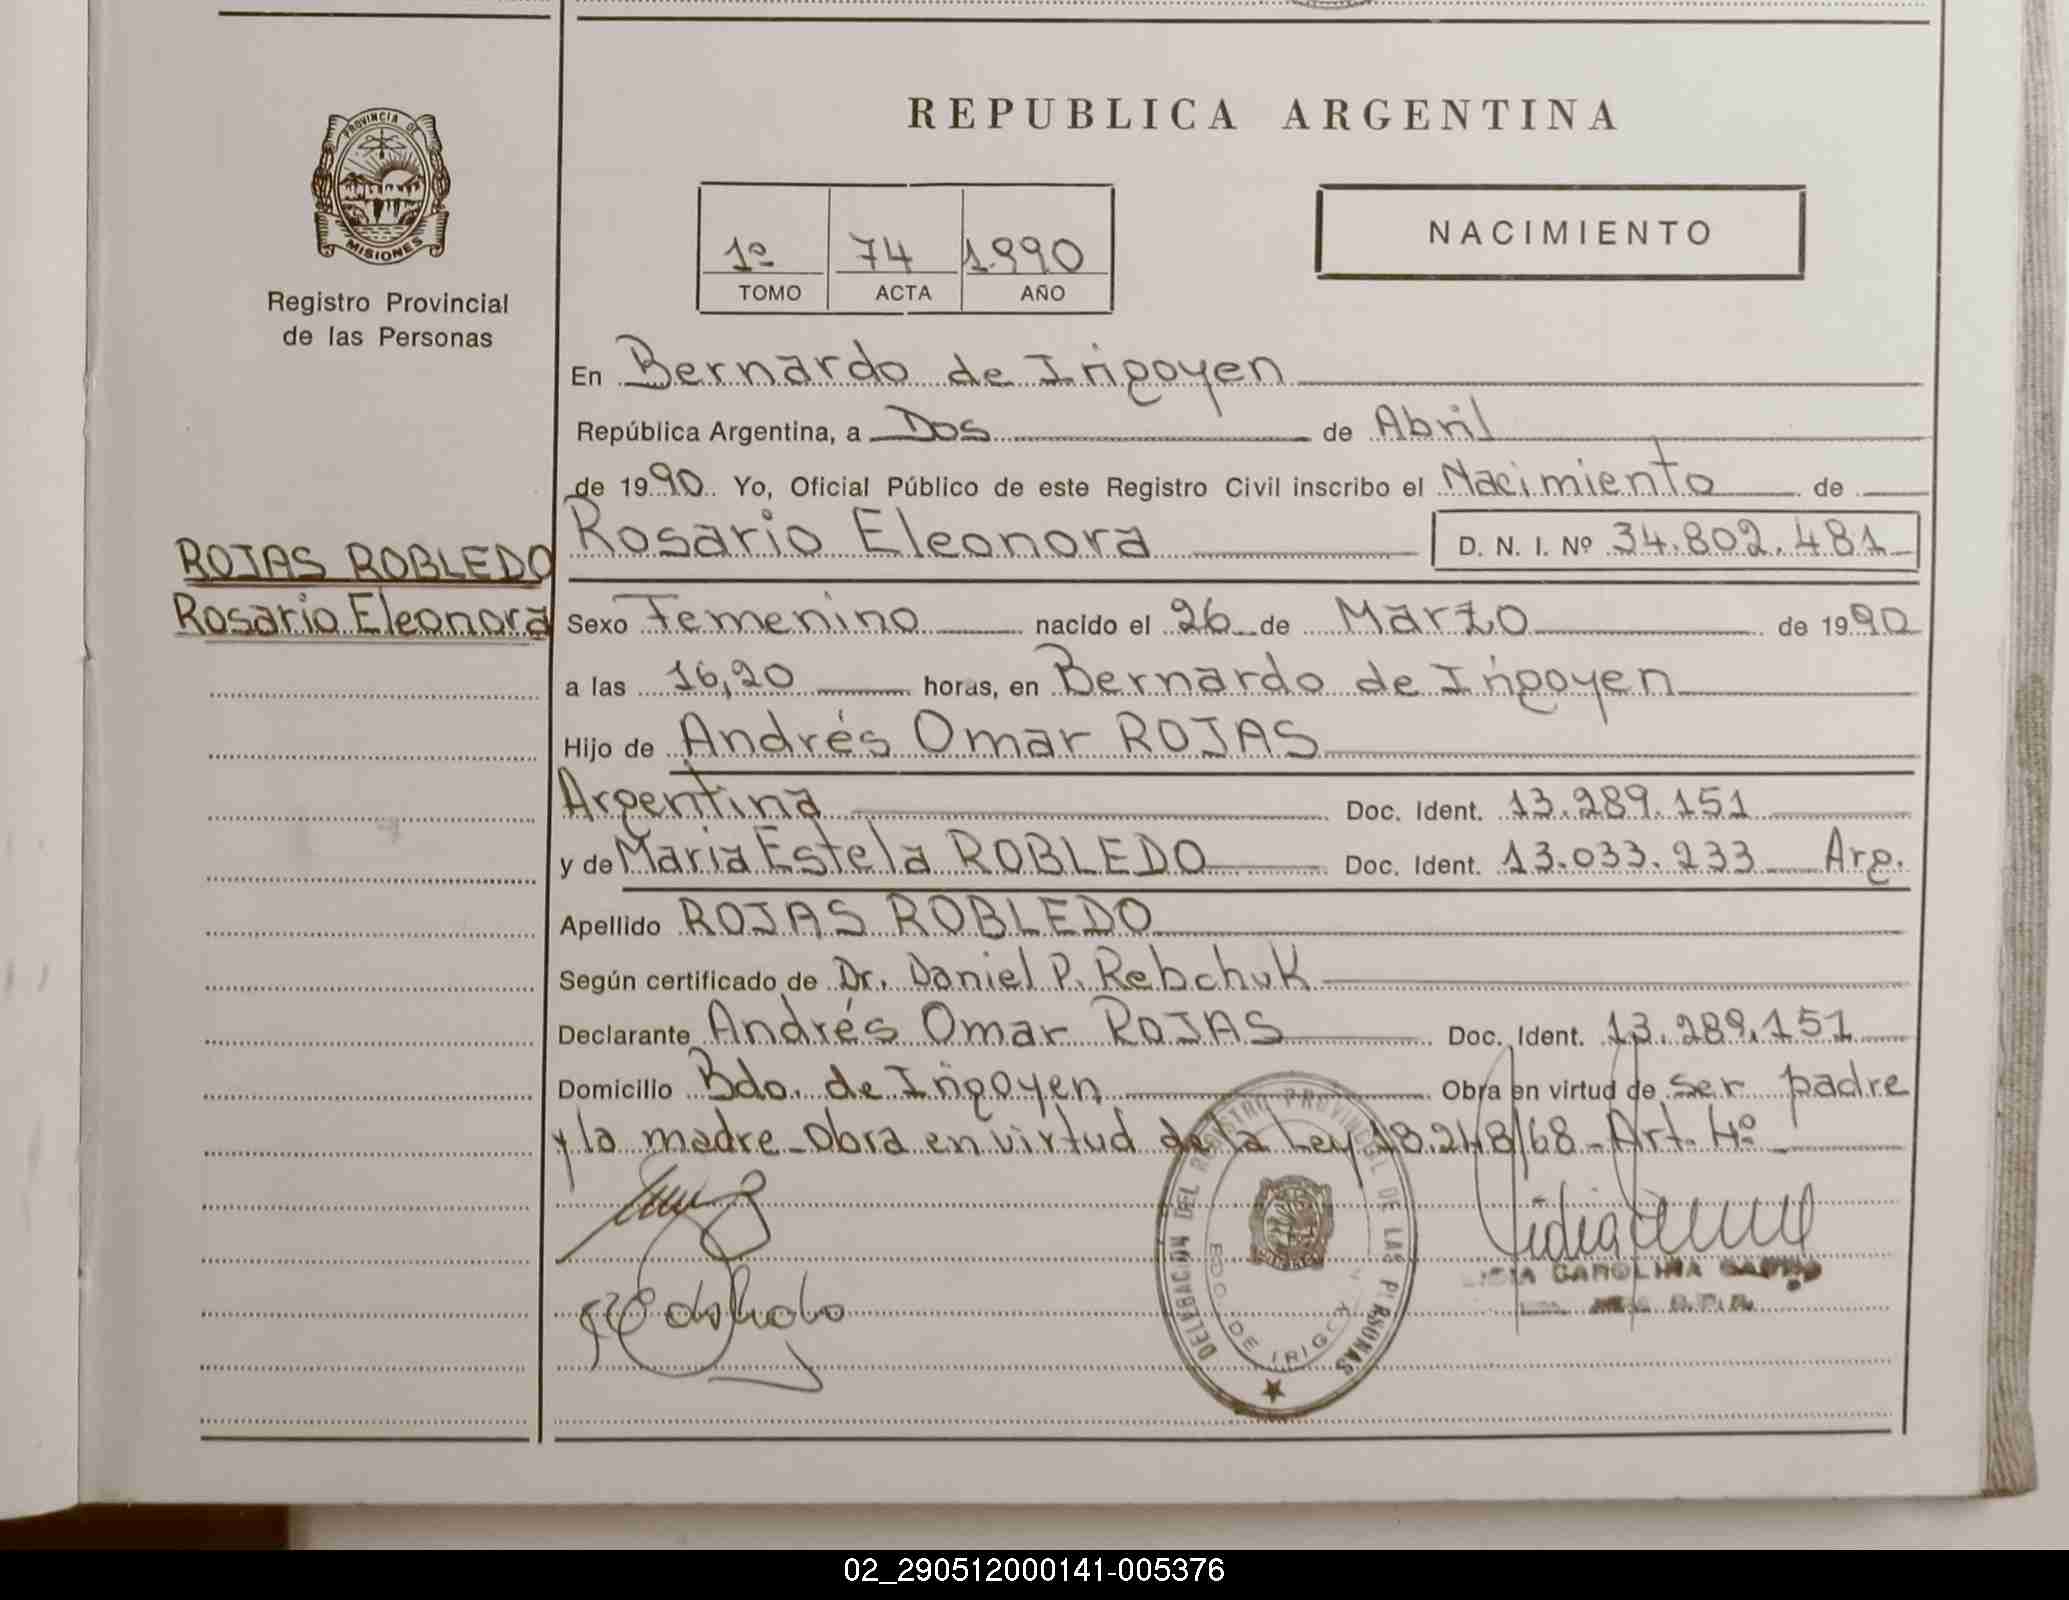 PROVINCIA DE
MISIONES
Registro Provincial
de las Personas
ROJAS ROBLEDO
Rosario Eleonora
REPUBLICA ARGENTINA
1º 74 1.990
TOMO ACTA AÑO
NACIMIENTO
En Bernardo de Irigoyen
República Argentina, a Dos de Abril
de 1990 Yo, Oficial Público de este Registro Civil inscribo el Nacimiento de
Rosario Eleonora D. N. I. Nº 34.802.481
Sexo Femenino nacido el 26 de Marzo de 1990
a las 16,20 horas, en Bernardo de Irigoyen
Hijo de Andrés Omar ROJAS
Argentina Doc. Ident. 13.289.151
y de Maria Estela ROBLEDO Doc. Ident. 13.033.233 Arg.
Apellido ROJAS ROBLEDO
Según certificado de Dr. Daniel P. Rebchuk
Declarante Andrés Omar ROJAS Doc. Ident. 13.289.151
Domicilio Bdo. de Irigoyen Obra en virtud de ser padre
y la madre obra en virtud de la Ley 18.248/68 - Art. 4º
DELEGACION DEL REGISTRO PROVINCIAL DE LAS PERSONAS
BDO. DE IRIGOYEN
CAROLINA
02_290512000141-005376